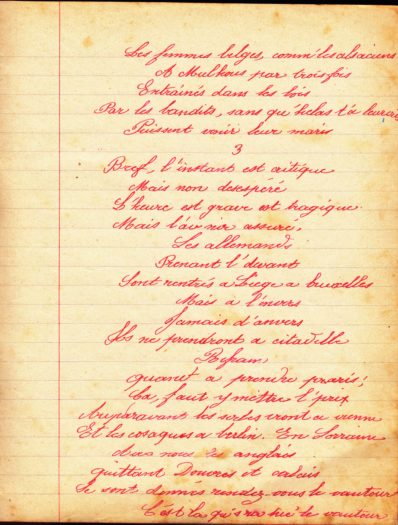 Les femmes belges, comm' les alsaciens
A Mulhous par trois fois
Entrainés dans les bois
Par les bandits, sans que hélas t'a leurai
Puissent venir leur maris
3
Bref, l'instant est critique
Mais non desespéré
L'heure est grave est tragique
Mais l'av'nir assuré,
Les allemands
Prenant l'devant
Sont rentrés a Liege a bruxelles
Mais a l'invers
Jamais d'anvers
Ils ne prendront a citadelle
Refrain
quant a prendre paris!
Ca faut y mettre l'prix
Auparavant les serbes vront a vienne
Et les cosaques a berlin. En Lorraine
avec nous les anglais
quittant Douvres et calais
Se sont donnés rendez vous le vautour
C'est la qu's'ra tué le vautour